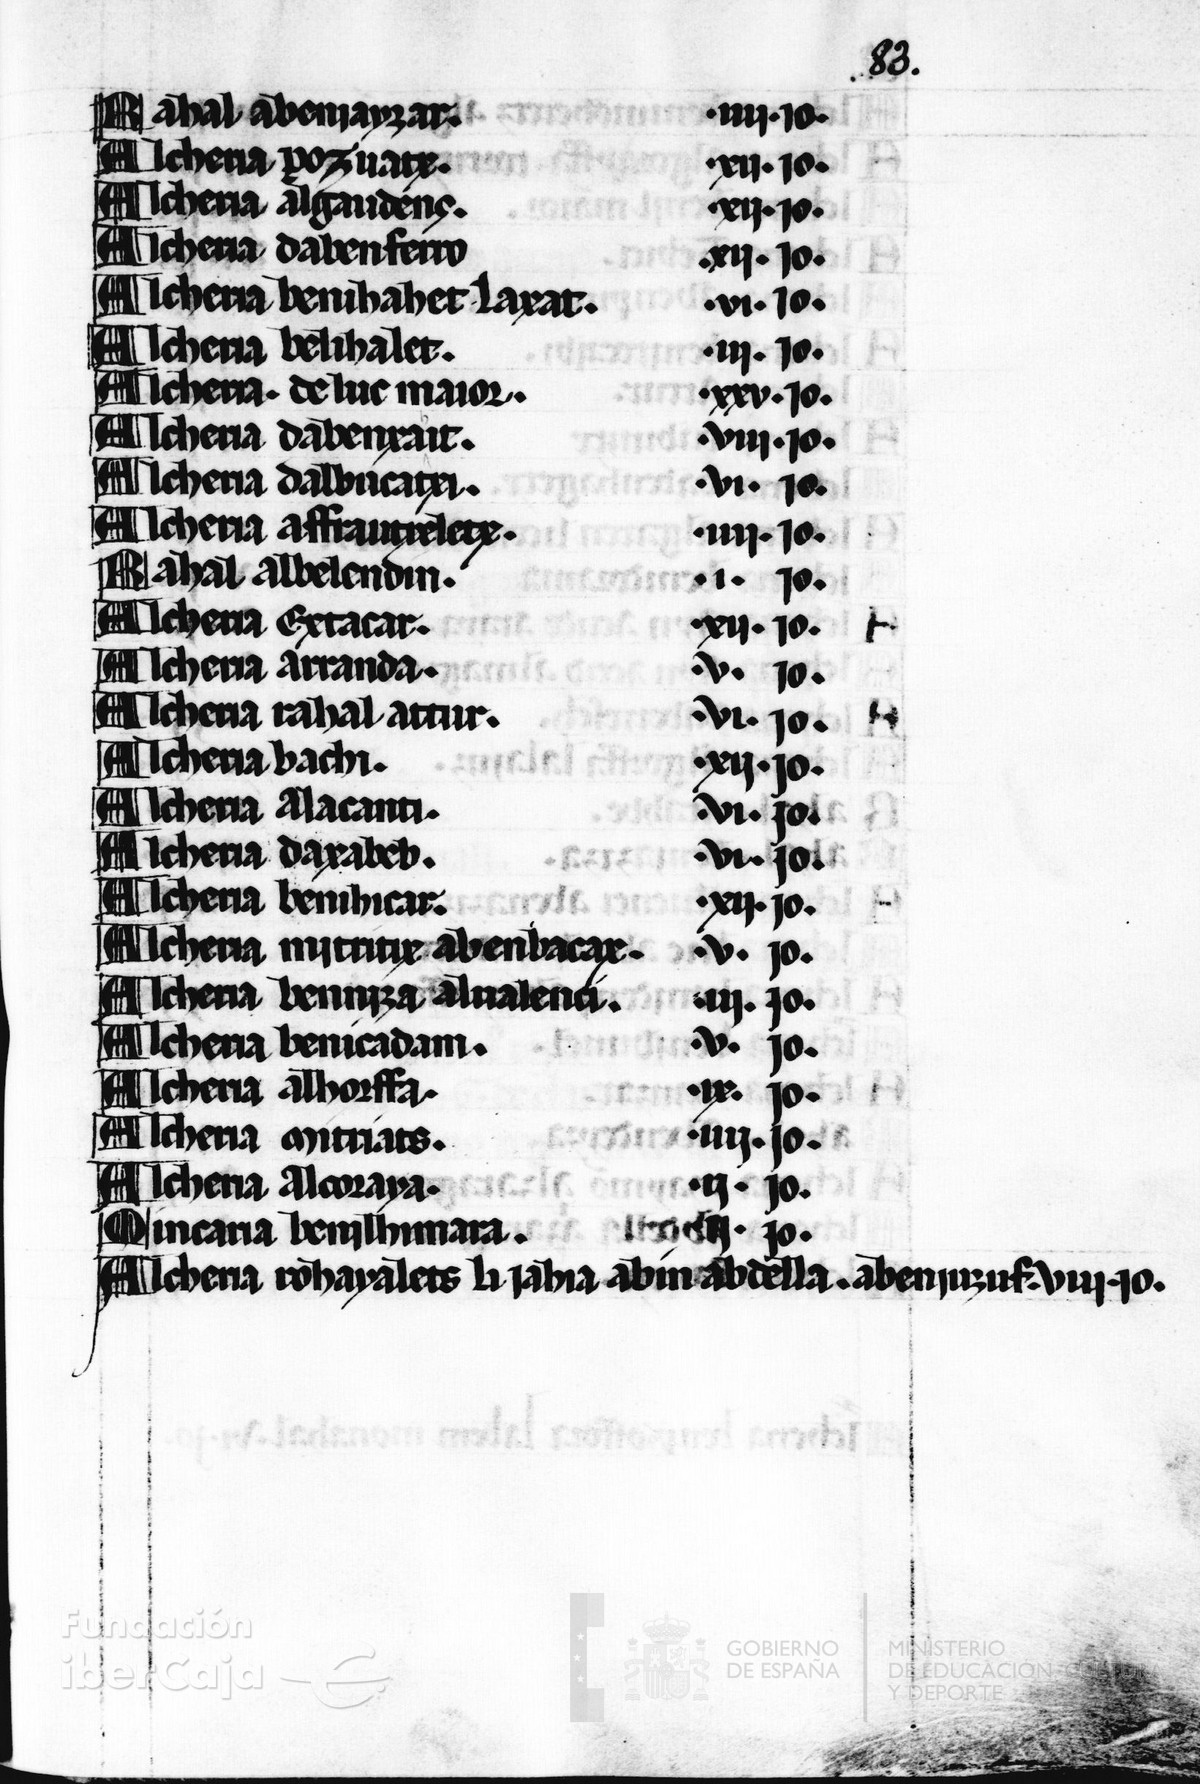 83.
Rahal abeniayzar. .iiij. jo.
Alcheria pozuatx. .xij. jo.
Alcheria algaudenç. .xij. jo.
Alcheria dabenferro .xij. jo.
Alcheria benihahet laxat. .vi. jo.
Alcheria belihalet. .iij. jo.
Alcheria. de luc maior. .xxv. jo.
Alcheria dabenxait. .viij. jo.
Alcheria dalbucaxi. .vi. jo.
Alcheria affrautxeletx. .iiij. jo.
Rahal albelendin. .i. jo.
Alcheria Extacar. .xij. jo.
Alcheria arranda. .v. jo.
Alcheria rahal attur. .vi. jo.
Alcheria bachi. .xij. jo.
Alcheria Alacanti. .vi. jo.
Alcheria daxabeb. .vi. jo.
Alcheria benihicar. .xij. jo.
Alcheria mijtitix abenbacax. .v. jo.
Alcheria beniiza alualenci. .iij. jo.
Alcheria benicadam. .v. jo.
Alcheria alhorffa. .ix. jo.
Alcheria mitriats. .iiij. jo.
Alcheria Alcoraya. .ij. jo.
Qincaria benilhimara. jo.
Alcheria rohayalets li jahia abin abdella. abenjuzuf. viij. jo.
Fundación
iberCaja
GOBIERNO
DE ESPAÑA
MINISTERIO
DE EDUCACIÓN, CULTURA
Y DEPORTE